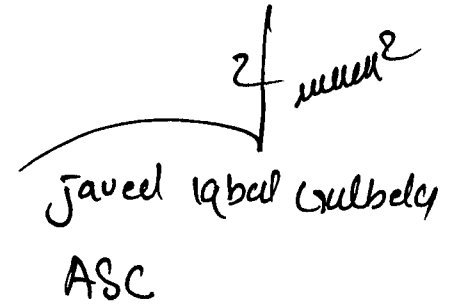 Javed Iqbal Gulbela
ASC